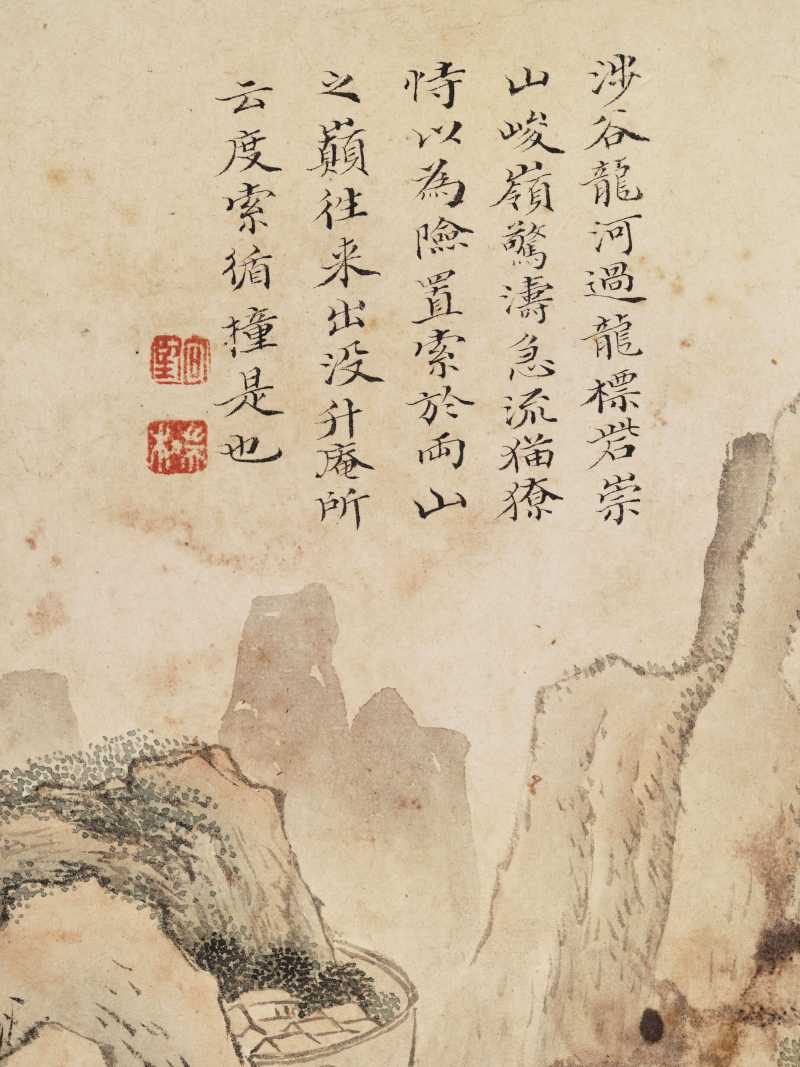 涉谷龍河過龍標砦崇
山峻嶺驚濤急流猫獠
恃以為險置索於兩山
之巔往来出没升庵所
云度索循撞是也